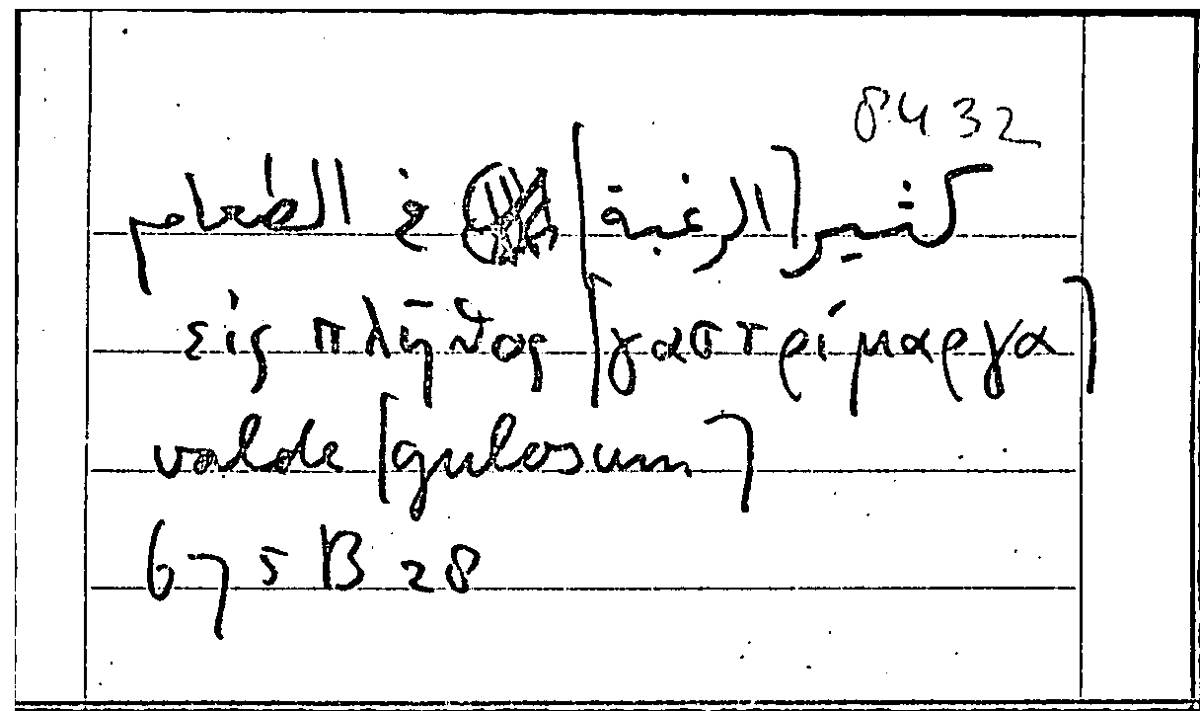 8432
كثير [الرغبة] في الطعام
εἰς πλῆθος [γαστρίμαργα]
valde [gulosum]
675 B 28